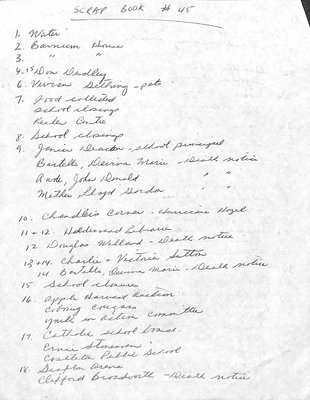 SCRAP BOOK #45
1. Water
2. Barnum House
3. " "
4.+5 Don Dudley
6. Vivian - pots
7. Food collected
School closings
Centre
8. School closings
9. Janice Deacon - school principal
Bartello, Devina Marie - Death notice
Awde, John Donald " "
Mathis, Lloyd Gordon " "
10. Chandler's Corner - Hurricane Hazel
11+12. Haldimand Libraries
12. Douglas Willand - Death notice
13+14. Charlie + Victoria Sutton
14. Bartello, Devina Marie - Death notice
15 School closures
16. Apple Harvest Auction
Cobourg Cougars
Ignite an Action Committee
17. Catholic School board.
Ernie
Castleton Public School
18. Grafton Arena
Clifford Broadworth - Death notice